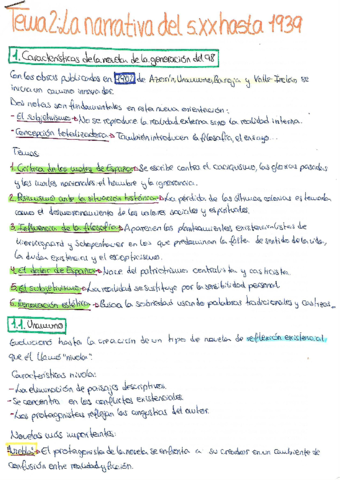 Tema 2: La narrativa del s.xx hasta 1939
1. Características de la novela de la generación del 98
Con las obras publicadas en 1902 de Azorín, Unamuno, Baroja y Valle Inclán se
inicia un camino innovador.
Dos notas son fundamentales en esta nueva orientación:
- El subjetivismo → No se reproduce la realidad externa sino la realidad interna.
- Concepción totalizadora → También introducen la filosofía, el ensayo...
Temas
1. Crítica de los males de España → Se escribe contra el caciquismo, las glorias pasadas
y los males nacionales: el hambre y la ignorancia.
2. Pesimismo ante la situación histórica → La pérdida de las últimas colonias es tomada
como el desmoronamiento de los valores sociales y espirituales.
3. Influencia de la filosofía → Aparecen los planteamientos existencialistas de
Kierkegaard y Schopenhauer en los que predominan la falta de sentido de la vida,
la duda existencial y el escepticismo.
4. El dolor de España → Nace del patriotismo centralista y casticista.
5. El subjetivismo → La realidad se sustituye por la sensibilidad personal.
6. Renovación estética → Busca la sobriedad usando palabras tradicionales y castizas.
1.1. Unamuno
Evolucionó hasta la creación de un tipo de novelas de reflexión existencial
que él llamó "nivola".
Características nivola:
- La eliminación de paisajes descriptivos.
- Se concentra en los conflictos existenciales.
- Los protagonistas reflejan las angustias del autor.
Novelas más importantes:
"Niebla" → El protagonista de la novela se enfrenta a su creador en un ambiente de
confusión entre realidad y ficción.